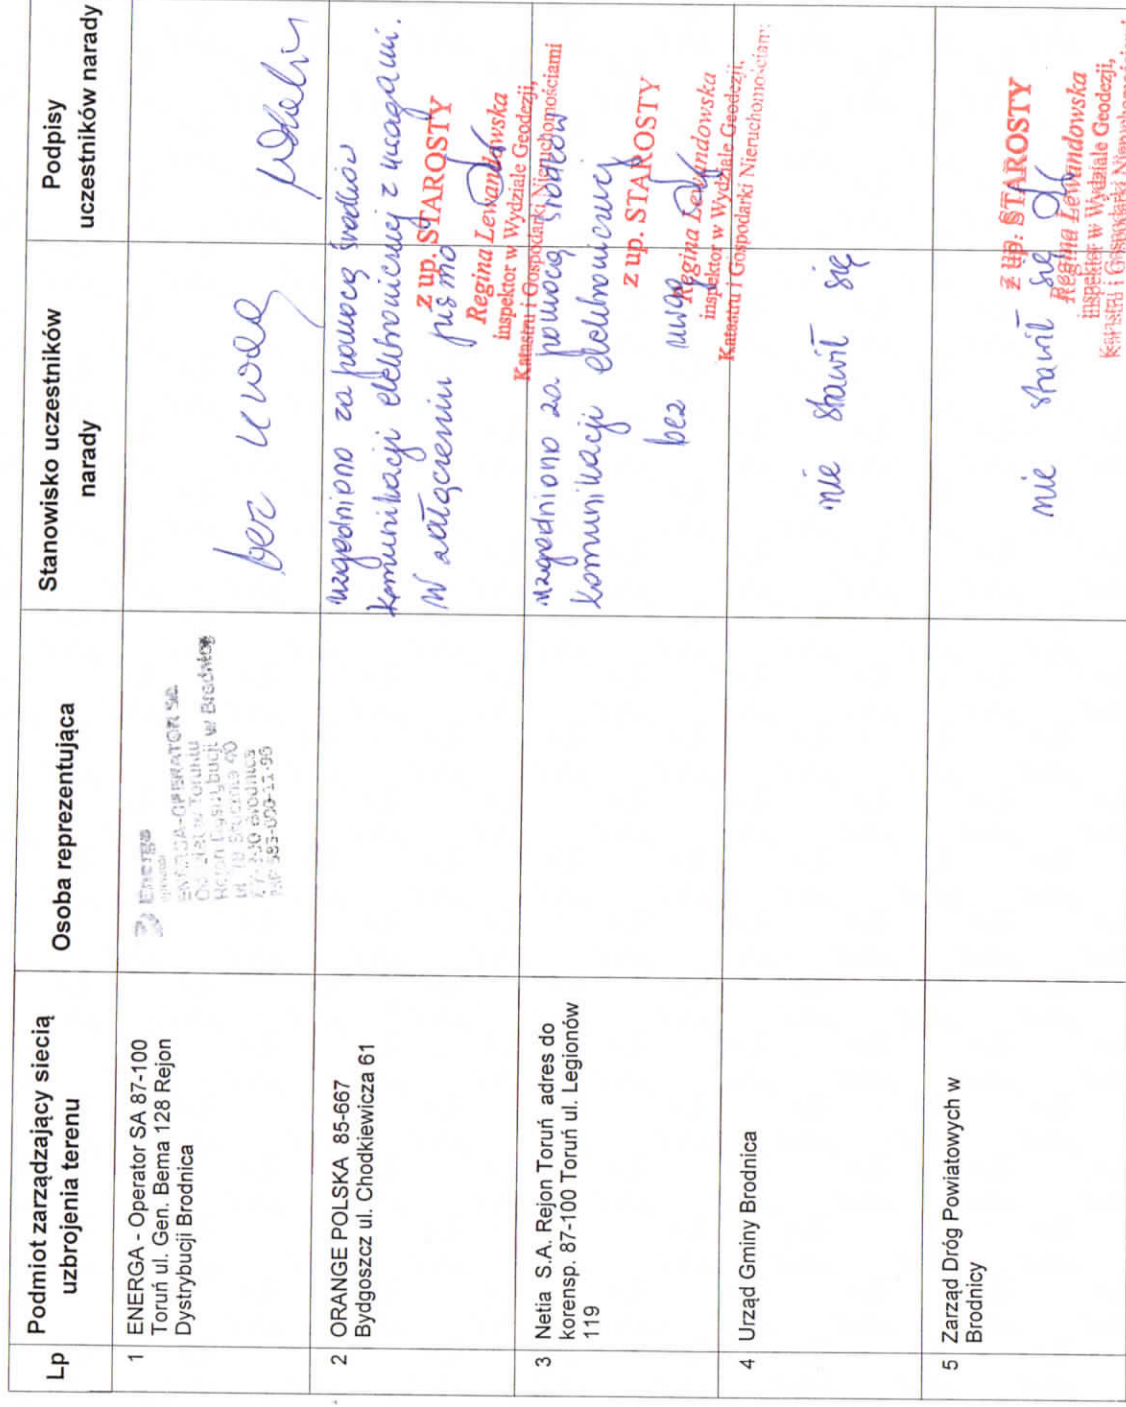 Lp
Podmiot zarządzający siecią
uzbrojenia terenu
Osoba reprezentująca
Stanowisko uczestników
narady
Podpisy
uczestników narady
1
ENERGA - Operator SA 87-100
Toruń ul. Gen. Bema 128 Rejon
Dystrybucji Brodnica
Energa
ENERGA-OPERATOR SA
w Brodnicy
bez uwag
2
ORANGE POLSKA 85-667
Bydgoszcz ul. Chodkiewicza 61
uzgodniono za pomocą środków
komunikacji elektronicznej z uwagami.
W załączeniu pismo
z up. STAROSTY
Regina Lewandowska
inspektor w Wydziale Geodezji,
Katastru i Gospodarki Nieruchomościami
3
Netia S.A. Rejon Toruń adres do
korensp. 87-100 Toruń ul. Legionów
119
uzgodniono za pomocą środków
komunikacji elektronicznej
bez uwag
z up. STAROSTY
Regina Lewandowska
inspektor w Wydziale Geodezji,
Katastru i Gospodarki Nieruchomościami
4
Urząd Gminy Brodnica
nie stawił się
5
Zarząd Dróg Powiatowych w
Brodnicy
nie stawił się
z up. STAROSTY
Regina Lewandowska
inspektor w Wydziale Geodezji,
Katastru i Gospodarki Nieruchomościami